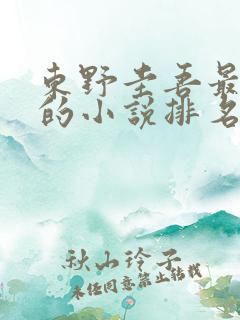 東野圭吾最
的小說排名
秋山玲子
未経同意禁止転載